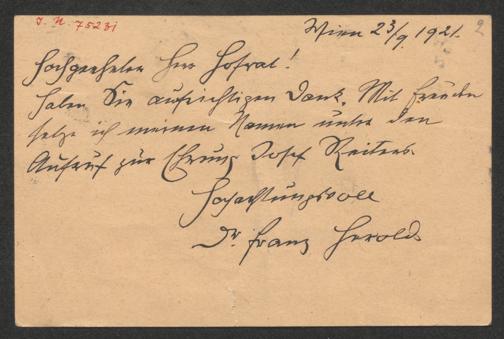 I. N. 75231
Wien 23/9. 1921. 2
Hochgeehrter Herr Hofrat!
Haben Sie aufrichtigen Dank. Mit Freuden
setze ich meinen Namen unter den
Aufruf zur Ehrung Josef Reiters.
Hochachtungsvoll
Dr. Franz Herold